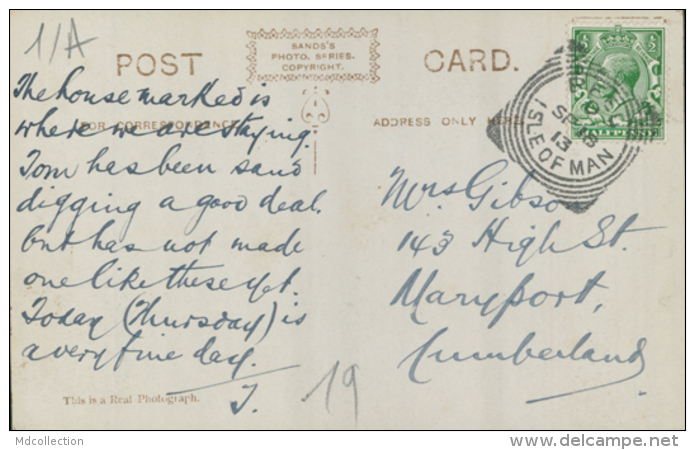 1/A
POST CARD.
SANDS'S
PHOTO. SERIES.
COPYRIGHT.
FOR CORRESPONDENCE
ADDRESS ONLY HERE
The house marked is
where we are staying.
Tom has been sand
digging a good deal.
but has not made
one like these yet.
Today (Thursday) is
a very fine day.
J.
Mrs Gibson
143 High St.
Maryport,
Cumberland
PEEL
SP 18
13
ISLE OF MAN
½
19
This is a Real Photograph.
Mdcollection
delcampe.net